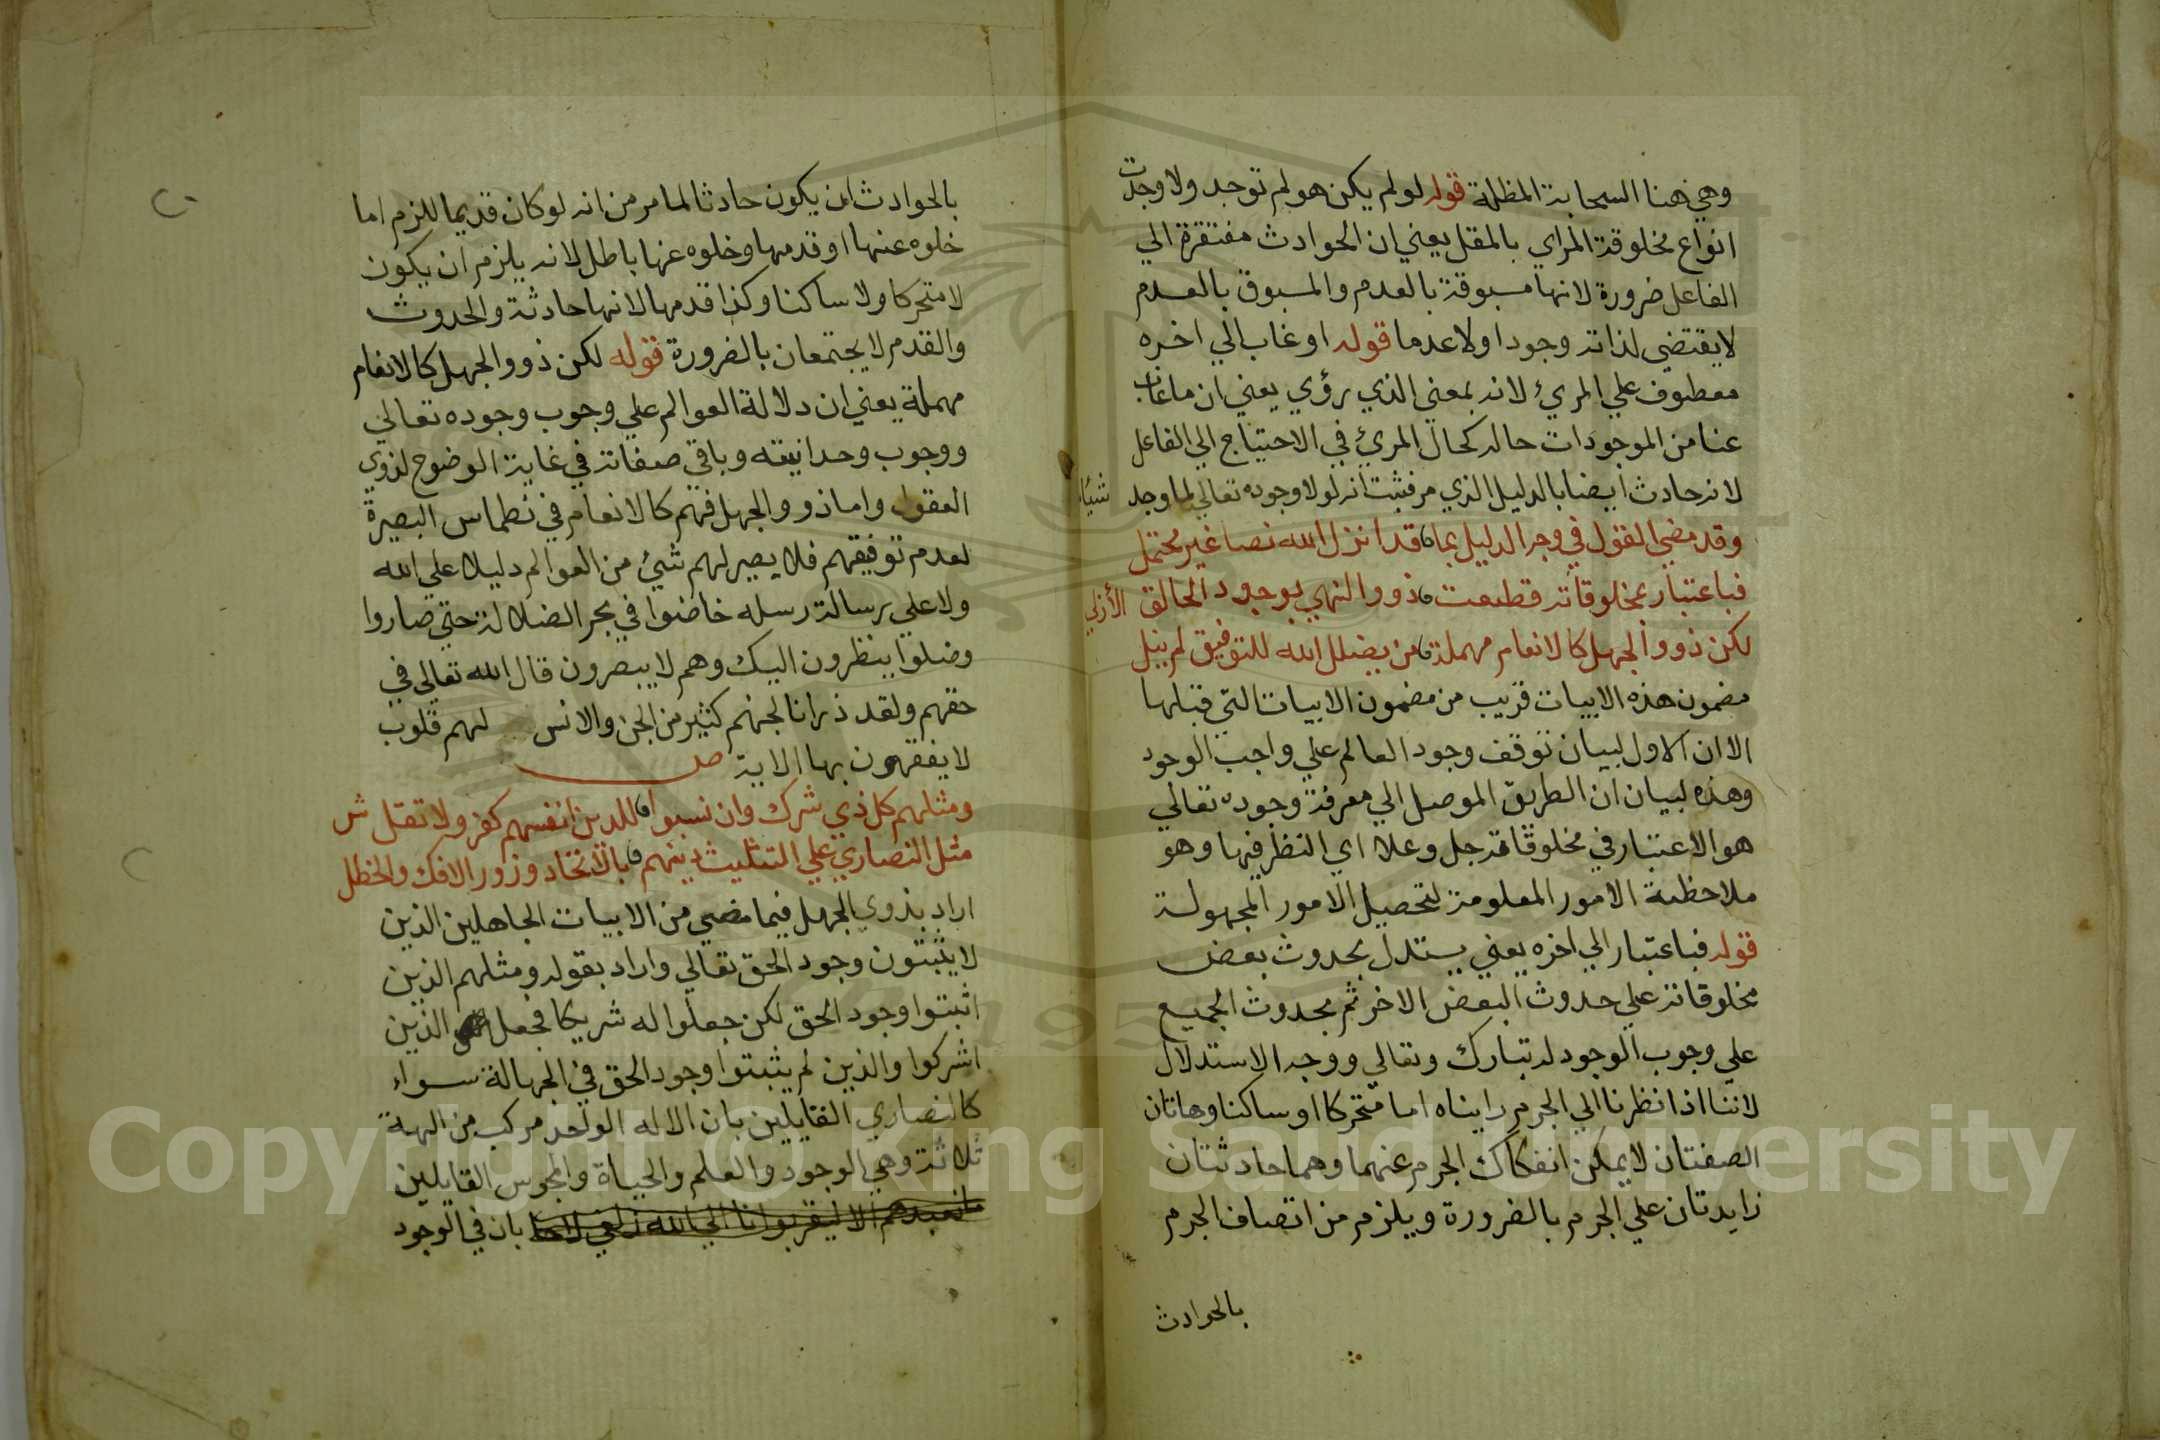 وهي هنا السحابة المظلة قوله لو لم يكن هو لم توجد ولا وجدت
انواع مخلوقة المراي بالمقل يعني ان الحوادث مفتقرة الي
الفاعل ضرورة لانها مسبوقة بالعدم والمسبوق بالعدم
لا يقتضي لذاته وجودا ولا عدما قوله او غاب الي اخره
معطوف علي المريء لانه بمعني الذي رؤي يعني ان ما غاب
عنا من الموجودات حاله كحال المريء في الاحتياج الي الفاعل
لانه حادث ايضا بالدليل الذي مر فثبت انه لولا وجوده تعالي لما وجد شيئا
وقد مضي القول في وجه الدليل بما قد انزل الله نصا غير محتمل
فباعتبار بمخلوقاته قطعت ذووا النهي بوجود الخالق الأزلي
لكن ذووا الجهل كالانعام مهملة من يضلل الله للتوفيق لم ينل
مضمون هذه الابيات قريب من مضمون الابيات التي قبلها
الا ان الاول لبيان توقف وجود العالم علي واجب الوجود
وهذه لبيان ان الطريق الموصل الي معرفة وجوده تعالي
هو الاعتبار في مخلوقاته جل وعلا اي النظر فيها وهو
ملاحظة الامور المعلومة لتحصيل الامور المجهولة
قوله فباعتبار الي اخره يعني يستدل بحدوث بعض
مخلوقاته علي حدوث البعض الاخر ثم بحدوث الجميع
علي وجوب الوجود له تبارك وتعالي ووجه الاستدلال
لاننا اذا نظرنا الي الجرم رايناه اما متحركا او ساكنا وهاتان
الصفتان لا يمكن انفكاك الجرم عنهما وهما حادثتان
زايدتان علي الجرم بالضرورة ويلزم من اتصاف الجرم
بالحوادث
بالحوادث ان يكون حادثا لما مر من انه لو كان قديما للزم اما
خلوه عنها او قدمها وخلوه عنها باطل لانه يلزم ان يكون
لا متحركا ولا ساكنا وكذا قدمها لانها حادثة والحدوث
والقدم لا يجتمعان بالضرورة قوله لكن ذووا الجهل كالانعام
مهملة يعني ان دلالة العوالم علي وجوب وجوده تعالي
ووجوب وحدانيته وباقي صفاته في غاية الوضوح لذوي
العقول واما ذووا الجهل فهم كالانعام في نطماس البصيرة
لعدم توفيقهم فلا يصير لهم شيئ من العوالم دليلا علي الله
ولا علي رسالة رسله خاضوا في بحر الضلالة حتي صاروا
وضلوا ينظرون اليك وهم لا يبصرون قال الله تعالي في
حقهم ولقد ذرانا لجهنم كثير من الجن والانس لهم قلوب
لا يفقهون بها الاية ص
ومثلهم كل ذي شرك وان نسبوا للدين انفسهم كفر ولا تقل ش
مثل النصاري علي التثليث دينهم بالاتخاد وزور الافك والخطل
اراد بذوي الجهل فيما مضي من الابيات الجاهلين الذين
لا يثبتون وجود الحق تعالي واراد بقوله ومثلهم الذين
اثبتوا وجود الحق لكن جعلوا له شريكا فجعل الذين
اشركوا والذين لم يثبتوا وجود الحق في الجهالة سواء
كالنصاري القايلين بان الاله الواحد مركب من الهة
ثلاثة وهي الوجود والعلم والحياة والمجوس القايلين
ما نعبدهم الا ليقربونا الي الله زلفي بان في الوجود
Copyright © King Saud University
1957